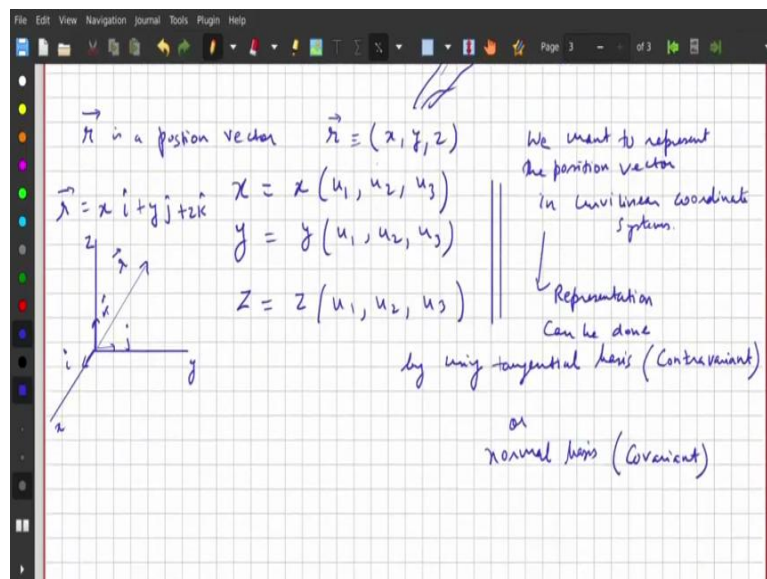 File Edit View Navigation Journal Tools Plugin Help
Page 3 of 3
r⃗ is a postion vector r⃗ ≡ (x, y, z)
r⃗ = x i + y j + z k
x = x (u₁, u₂, u₃)
y = y (u₁, u₂, u₃)
z = z (u₁, u₂, u₃)
z
r⃗
k
i
j
y
x
We want to represent
the position vector
in curvilinear coordinate
systems.
Representation
can be done
by using tangential basis (Contravariant)
or
normal basis (Covariant)